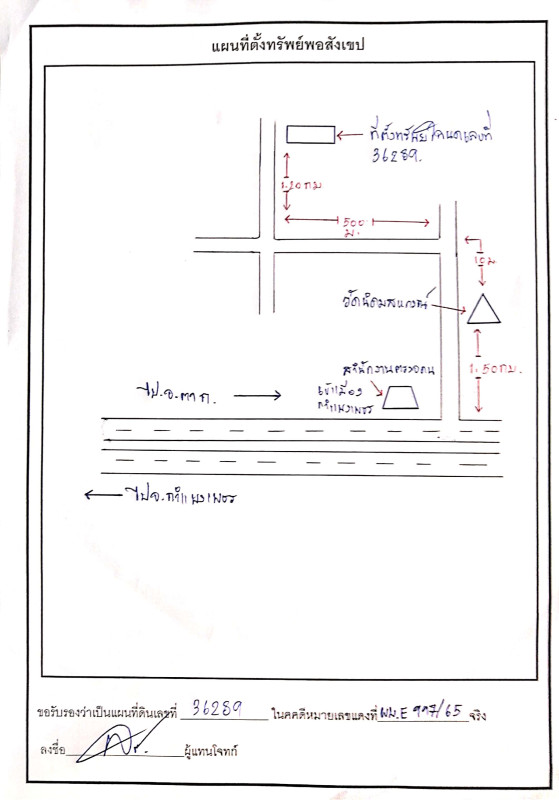 แผนที่ตั้งทรัพย์พอสังเขป
ที่ตั้งทรัพย์โฉนดเลขที่
36289.
1.20 กม.
500
ม.
10 ม.
วัดนิคม
1.50 กม.
สำนักงานตรวจคน
เข้าเมือง
กำแพงเพชร
ไป.จ.ตาก.
ไปจ.กำแพงเพชร
ขอรับรองว่าเป็นแผนที่ดินเลขที่ 36289 ในคดีหมายเลขแดงที่ ผบ.E 997/65 จริง
ลงชื่อ ผู้แทนโจทก์